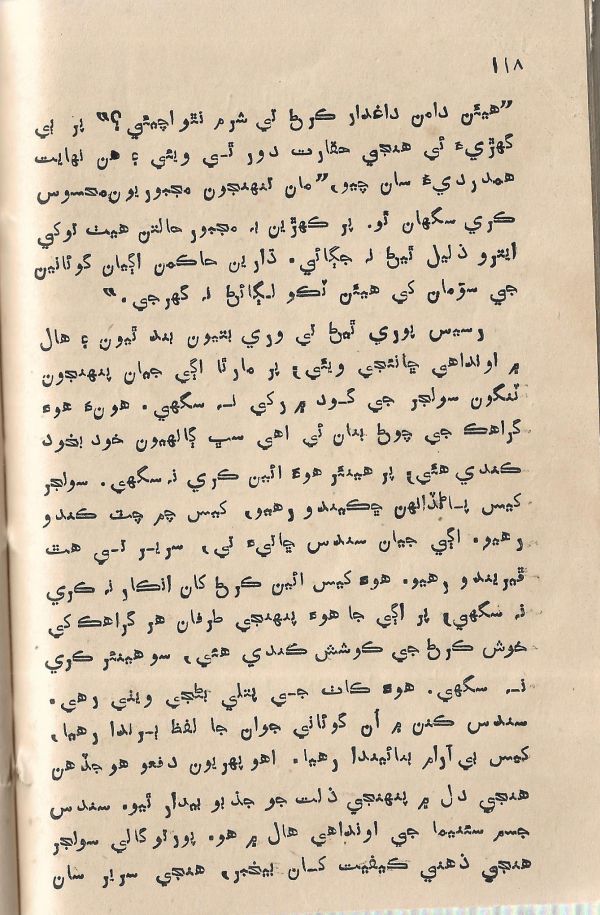 ١١٨
”هيئن دامن داغدار ڪرڻ تي شرم نٿو اچيئي؟“ پر ٻي
گهڙيءَ ئي هنجي حقارت دور ٿي ويئي ۽ هن نهايت
همدرديءَ سان چيو، ”مان تنهنجون مجبوريون محسوس
ڪري سگهان ٿو. پر ڪهڙين به مجبور حالتن هيٺ توکي
ايترو ذليل ٿيڻ نه جڳائي. ڌارين حاڪمن اڳيان گوئانين
جي سؤمان کي هيئن ٽڪو لڳائڻ نه گهرجي.“
رسيس پوري ٿيڻ تي وري بتيون بند ٿيون ۽ هال
۾ اونداهي ڇانئجي ويئي، پر مارٿا اڳي جيان پنهنجون
ٽنگون سولجر جي گود ۾ رکي نه سگهي. هونءَ هوءَ
گراهڪ جي چوڻ بنان ئي اهي سڀ ڳالهيون خود بخود
ڪندي هئي، پر هينئر هوءَ ائين ڪري نه سگهي. سولجر
کيس ڀاڪر ۾ ڇڪيندو رهيو، کيس چم چٽ ڪندو
رهيو. اڳي جيان سندس ڇاتيءَ تي، سرير تي هٿ
ڦيريندو رهيو. هوءَ کيس ائين ڪرڻ کان انڪار نه ڪري
نه سگهي، پر اڳي جا هوءَ پنهنجي طرفان هر گراهڪ کي
خوش ڪرڻ جي ڪوشش ڪندي هئي، سو هينئر ڪري
نه سگهي. هوءَ ڪاٺ جي پتلي بڻجي ويٺي رهي.
سندس ڪنن ۾ اُن گوئاني جوان جا لفظ ٻرندا رهيا،
کيس بي آرام بنائيندا رهيا. اهو پهريون دفعو هو جڏهن
هنجي دل ۾ پنهنجي ذلت جو جذبو بيدار ٿيو. سندس
جسم سئنيما جي اونداهي هال ۾ هو. پورٽوگالي سولجر
هنجي ذهني ڪيفيت کان بيخبر، هنجي سرير سان